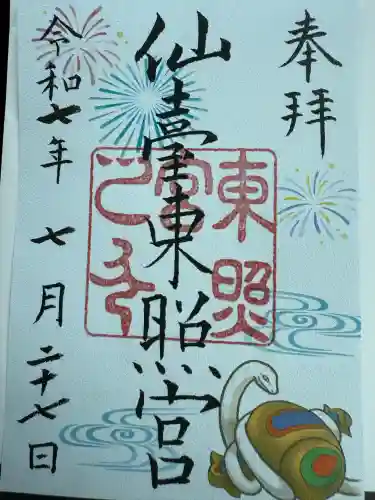 奉拝
仙臺東照宮
令和七年
七月二十七日
東照
宮